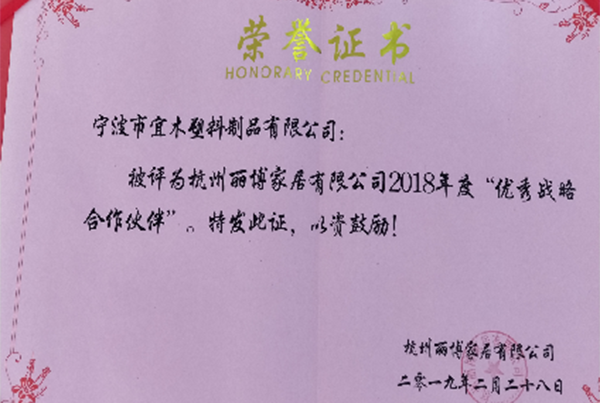 荣誉证书
HONORARY CREDENTIAL
宁波市宜木塑料制品有限公司：
被评为杭州丽博家居有限公司2018年度“优秀战略
合作伙伴”。特发此证，以资鼓励！
杭州丽博家居有限公司
二零一九年二月二十八日